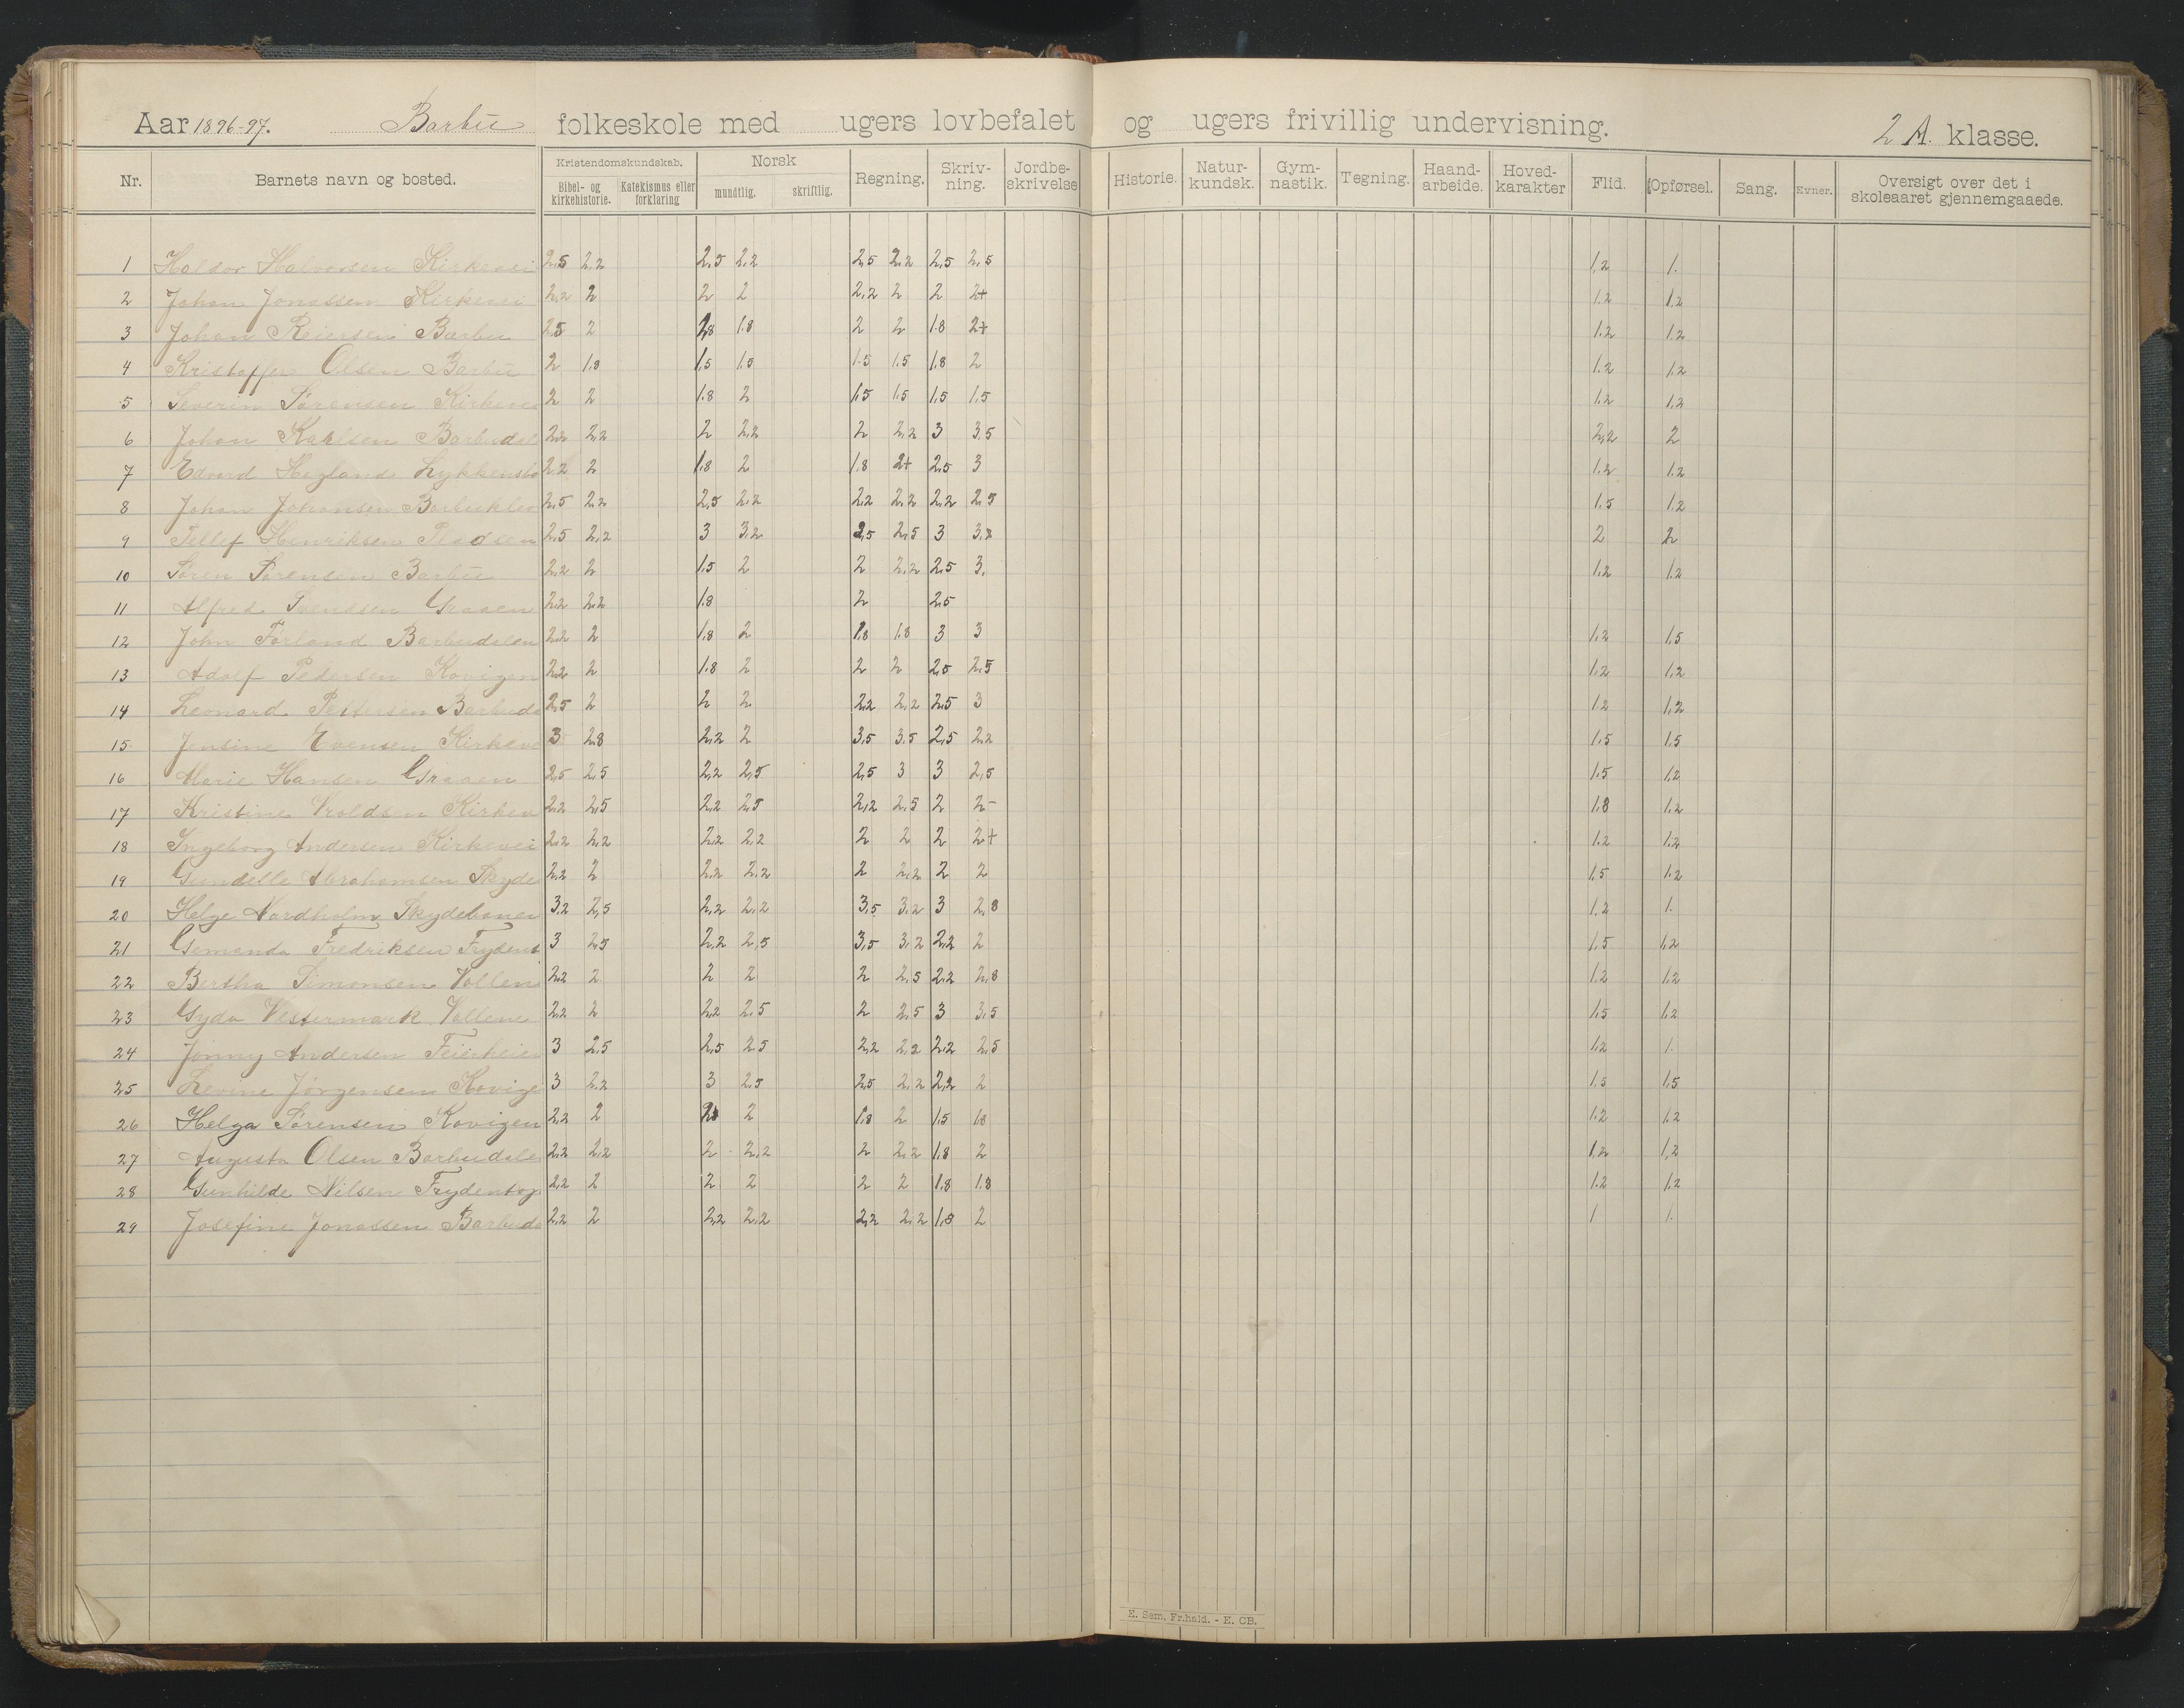 Aar 1896-97. Barbu folkeskole med ugers lovbefalet og ugers frivillig undervisning. 2 A. klasse.
Nr. Barnets navn og bosted. Kristendomskundskab. Bibel- og kirkehistorie. Katekismus eller forklaring Norsk mundtlig. skriftlig. Regning. Skriv-ning. Jordbe-skrivelse Historie. Natur-kundsk. Gym-nastik. Tegning. Haand-arbeide. Hoved-karakter Flid. Opførsel. Sang. Evner. Oversigt over det i skoleaaret gjennemgaaede.
1 Halvorsen Kirkevei 2,5 2,2 2,5 2,2 2,5 2,2 2,5 2,5 1,2 1.
2 Johan Jonassen Kirkevei 2,2 2 2 2 2,2 2 2 2+ 1,2 1,2
3 Johan Reiersen Barbu 2,5 2 1,8 1.8 2 2 1.8 2+ 1.2 1.2
4 Kristoffer Olsen Barbu 2 1.8 1,5 1.5 1.5 1.5 1.8 2 1.2 1.2
5 Severin Sørensen Kirkevei 2 2 1.8 2 1.5 1.5 1.5 1.5 1.2 1.2
6 Johan Karlsen Barbudal 2,2 2,2 2 2,2 2 2,2 3 3.5 2,2 2
7 Edvard Hegland 2,2 2 1.8 2 1.8 2+ 2.5 3 1.2 1.2
8 Johan Johansen 2,5 2,2 2,5 2,2 2,2 2,2 2,2 2,5 1.5 1.2
9 Tellef Henriksen 2,5 2,2 3 3,2 2,5 2,5 3 3,2 2 2
10 Søren Sørensen Barbu 2,2 2 1.5 2 2 2,2 2,5 3. 1.2 1.2
11 Alfred Svendsen Graaen 2,2 2,2 1.8 2 2.5
12 John Førland Barbudalen 2,2 2 1.8 2 1.8 1.8 3 3 1.2 1.5
13 Adolf Pedersen Kovigen 2,2 2 1.8 2 2 2 2,5 2,5 1.2 1.2
14 Leonard Pettersen Barbuda 2,5 2 2 2 2,2 2,2 2,5 3 1.2 1.2
15 Jensine Evensen Kirkeve 3 2.8 2,2 2 3,5 3,5 2,5 2,2 1.5 1.5
16 Marie Hansen Graaen 2,5 2,5 2,2 2,5 2,5 3 3 2,5 1.5 1.2
17 Kristine Vroldsen Kirkev 2,2 2,5 2,2 2,5 2,2 2,5 2 2- 1.8 1.2
18 Ingeborg Andersen Kirkevei 2,2 2,2 2,2 2,2 2 2 2 2+ 1.2 1.2
19 Gundelle Abrahamsen Skyde 2,2 2 2,2 2,2 2 2,2 2 2 1.5 1.2
20 Helge Nordholm Skydebanen 3,2 2,5 2,2 2,2 3,5 3,2 3 2,8 1.2 1.
21 Fredriksen 3 2,5 2,2 2,5 3,5 3,2 2,2 2 1.5 1.2
22 Bertha Simonsen Vollene 2,2 2 2 2 2 2,5 2,2 2,8 1.2 1.2
23 Gyda Vestermark Vollene 2,2 2 2,2 2,5 2 2,5 3 3,5 1.5 1.2
24 Jonny Andersen Feierheie 3 2,5 2,5 2,5 2,2 2,2 2,2 2,5 1.2 1.
25 Levine Jørgensen Kovige 3 2,2 3 2,5 2,5 2,2 2,2 2 1.5 1.5
26 Helga Sørensen Kovigen 2,2 2 2 2 1.8 2 1.5 1.8 1.2 1.2
27 Augusta Olsen Barbudale 2,2 2,2 2 2,2 2 2,2 1.8 2 1,2 1,2
28 Gunhilde Nilsen 2,2 2 2 2 2 2 1.8 1.8 1.2 1.2
29 Josefine Jonassen Barbuda 2,2 2 2,2 2,2 2,2 2,2 1,8 2 1 1.
E. Sem, Fr.hald. - E. CB.